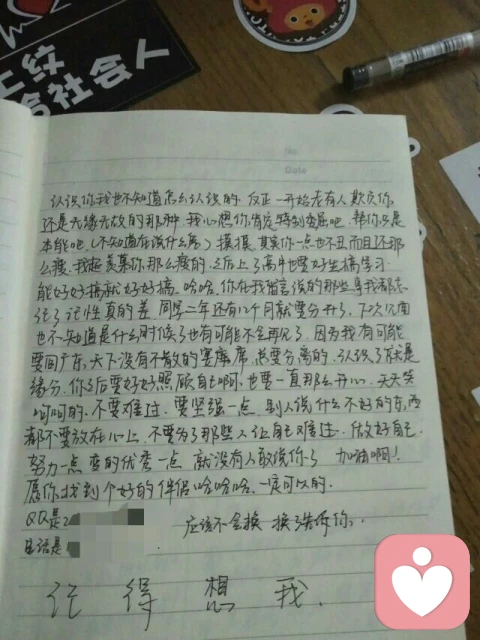 上纹
社会人
No.
Date
认识你我也不知道怎么认识的 反正一开始老有人欺负你
还是无缘无故的那种 我心想你肯定特别委屈吧 帮你只是
本能吧(不知道在说什么屁)摸摸 其实你一点也不丑而且还那
么瘦 我超羡慕你那么瘦的 之后上了高中也要好生搞学习
能好好搞就好好搞 哈哈 你在我留言说的那些事我都忘
记了记性真的差 同学二年还有12个月就要分开了 下次见面
也不知道是什么时候了也有可能不会再见了 因为我有可能
要回广东 天下没有不散的宴席 总要分离的 认识了就是
缘分 你之后要好好照顾自己啊 也要一直那么开心 天天笑
呵呵的 不要难过 要坚强一点 别人说什么不好的东西
都不要放在心上 不要为了那些人让自己难过 做好自己
努力一点 变的优秀一点 就没有人敢说你了 加油啊!
愿你找到个好的伴侣哈哈哈 一定可以的.
QQ是2 应该不会换 换了告诉你.
电话是
记得想我.